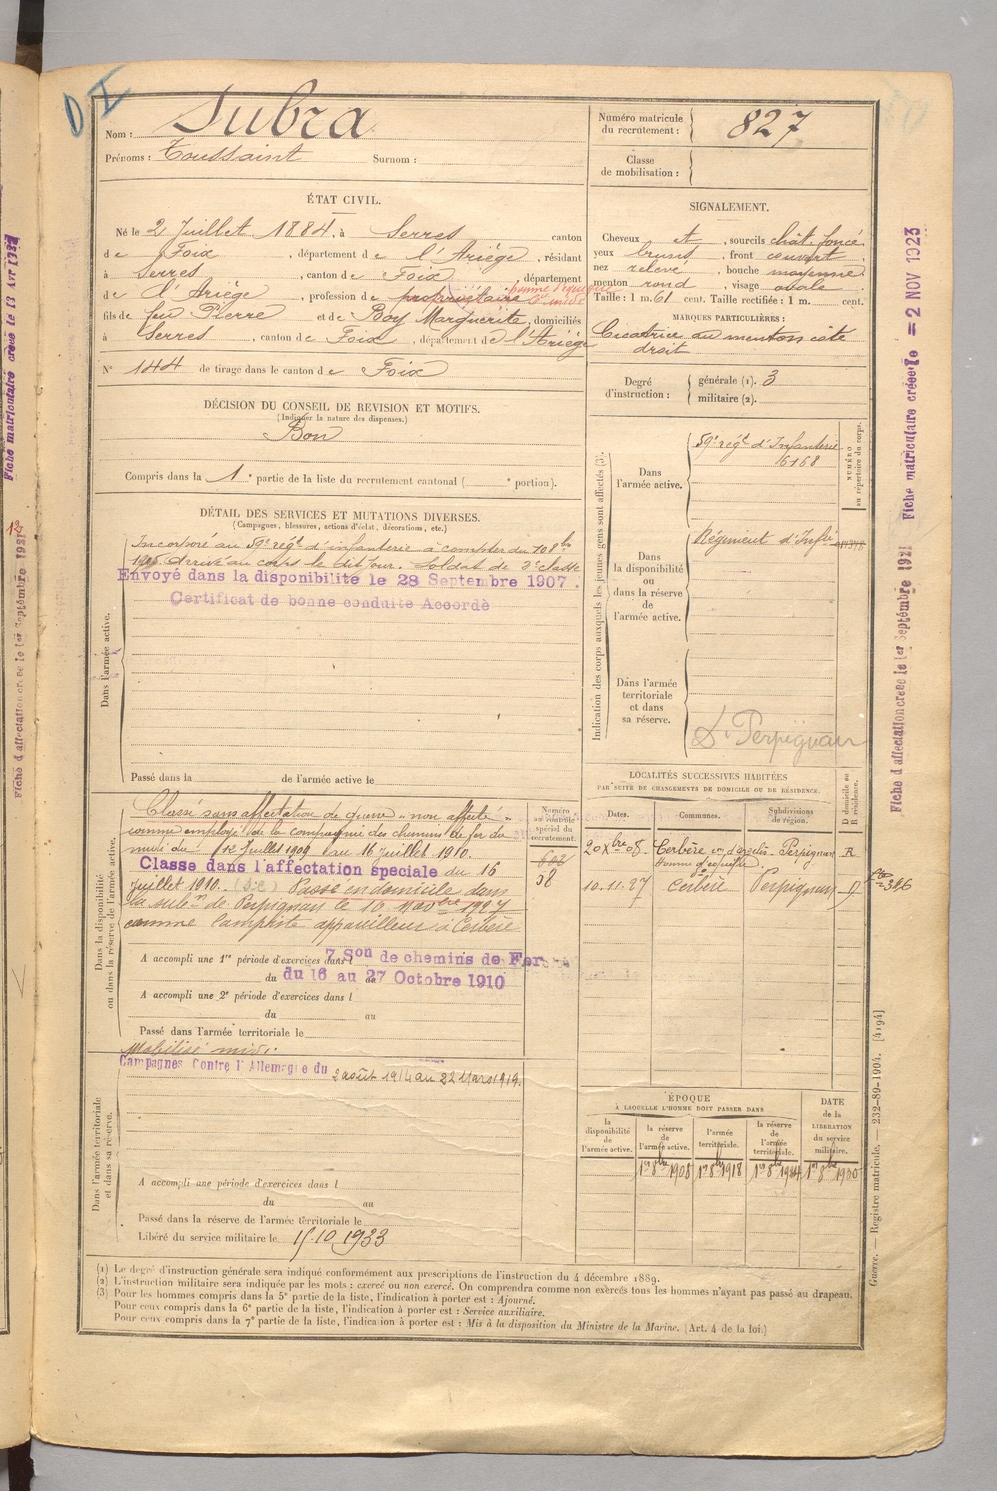 D I
Nom : Subra
Prénoms : Toussaint Surnom :
Numéro matricule
du recrutement : 827
Classe
de mobilisation :
ÉTAT CIVIL.
Né le 2 Juillet 1884, à Serres canton
de Foix, département de l'Ariège, résidant
à Serres, canton de Foix, département
de l'Ariège, profession de propriétaire
fils de feu Pierre et de Boy Marguerite, domiciliés
à Serres, canton de Foix, département de l'Ariège
N° 144 de tirage dans le canton de Foix
DÉCISION DU CONSEIL DE REVISION ET MOTIFS.
(Indiquer la nature des dispenses.)
Bon
Compris dans la 1e partie de la liste du recrutement cantonal ( e portion).
SIGNALEMENT.
Cheveux et, sourcils chât. foncé
yeux bruns, front couvert,
nez relevé, bouche moyenne
menton rond, visage ovale
Taille : 1 m. 61 cent. Taille rectifiée : 1 m. cent.
MARQUES PARTICULIÈRES :
Cicatrice au menton côté
droit
Degré
d'instruction : générale (1). 3
militaire (2).
DÉTAIL DES SERVICES ET MUTATIONS DIVERSES.
(Campagnes, blessures, actions d'éclat, décorations, etc.)
Dans l'armée active.
Incorporé au 59e régt d'infanterie à compter du 10 8bre
1905. Arrivé au corps le dit jour. Soldat de 2e classe
Envoyé dans la disponibilité le 28 Septembre 1907.
Certificat de bonne conduite Accordé
Passé dans la de l'armée active le
Indication des corps auxquels les jeunes gens sont affectés (3).
NUMÉRO
au répertoire du corps.
Dans
l'armée active.
59e régt d'Infanterie
6168
Dans
la disponibilité
ou
dans la réserve
de
l'armée active.
Régiment d'Infie
Dans l'armée
territoriale
et dans
sa réserve.
Perpignan
Dans la disponibilité
ou dans la réserve de l'armée active.
Classé sans affectation de guerre "non affecté"
comme employé de la compagnie des chemins de fer du
midi du 12 Juillet 1909 au 16 Juillet 1910.
Classe dans l'affectation speciale du 16
Juillet 1910. (S.C) Passé en domicile dans
la subon de Perpignan le 10 novbre 1927
comme lampiste appareilleur à Cerbère
A accompli une 1re période d'exercices dans l 7 Son de chemins de Fer
du 16 au 27 Octobre 1910
A accompli une 2e période d'exercices dans l
du au
Passé dans l'armée territoriale le
Mobilisé midi.
Numéro
au contrôle
spécial du
recrutement.
602
58
LOCALITÉS SUCCESSIVES HABITÉES
PAR SUITE DE CHANGEMENTS DE DOMICILE OU DE RÉSIDENCE.
Dates. Communes. Subdivisions
de région. D domicile ou
R résidence.
20 Xbre 08. Cerbère Perpignan R
homme d'équipe.
10.11.27 Cerbère Perpignan D
Dans l'armée territoriale
et dans sa réserve.
Campagnes Contre l'Allemagne du 2 août 1914 au 22 Mars 1919.
A accompli une période d'exercices dans l
du au
Passé dans la réserve de l'armée territoriale le
Libéré du service militaire le 15.10.1933
ÉPOQUE
À LAQUELLE L'HOMME DOIT PASSER DANS
DATE
de la
LIBERATION
du service
militaire.
la
disponibilité
de
l'armée active.
la réserve
de
l'armée active.
l'armée
territoriale.
la réserve
de
l'armée
territoriale.
1er 8bre 1908 1er 8bre 1918 1er 8bre 1924 1er 8bre 1930
(1) Le degré d'instruction générale sera indiqué conformément aux prescriptions de l'instruction du 4 décembre 1889.
(2) L'instruction militaire sera indiquée par les mots : exercé ou non exercé. On comprendra comme non exercés tous les hommes n'ayant pas passé au drapeau.
(3) Pour les hommes compris dans la 5e partie de la liste, l'indication à porter est : Ajourné.
Pour ceux compris dans la 6e partie de la liste, l'indication à porter est : Service auxiliaire.
Pour ceux compris dans la 7e partie de la liste, l'indication à porter est : Mis à la disposition du Ministre de la Marine. (Art. 4 de la loi.)
Guerre. — Registre matricule. — 232-89-1904. [4194]
Fiche d'affectation créée le 1er Septembre 1921
Fiche matriculaire créée le = 2 NOV 1923
Fiche matriculaire créée le 13 Avr
Fiche d'affectation créée le 1er Septembre 1921
12